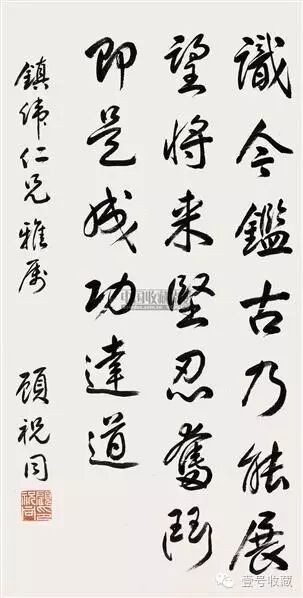 識今鑑古乃能展
望将来堅忍奮鬥
即是成功達道
鎮緯仁兄雅屬
顧祝同
壹号收藏